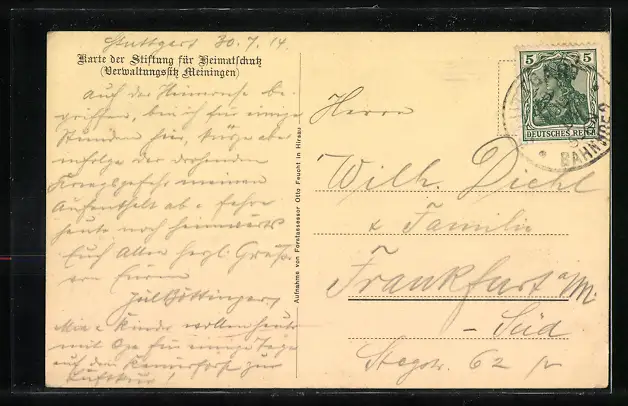 Stuttgart 30.7.14.
Karte der Stiftung für Heimatschutz
(Verwaltungssitz Meiningen)
Auf der Heimreise be-
griffen, bin ich für einige
Stunden hier, kürze aber
infolge der drohenden
Kriegsgefahr meinen
Aufenthalt ab & fahre
heute noch heimwärts
Euch Allen herzl. Grüße
Göttinger
Kinder wollen heute
mit für einige Tage
auf den zur
Luftkur!
Aufnahme von Forstassessor Otto Feucht in Hirsau
5 5
DEUTSCHES REICH
BAHNHOF
Herrn
Wilh. Diehl
& Familie
Frankfurt a/M.
- Süd
Stegstr. 62